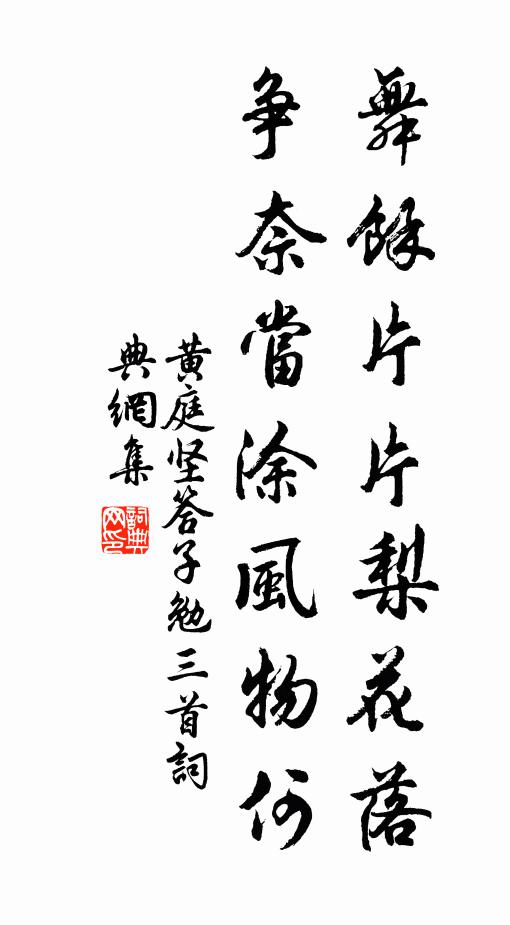 舞餘片片梨花落
争奈當涂風物何
黄庭坚答子勉三首詞
典網集
詞典
网印